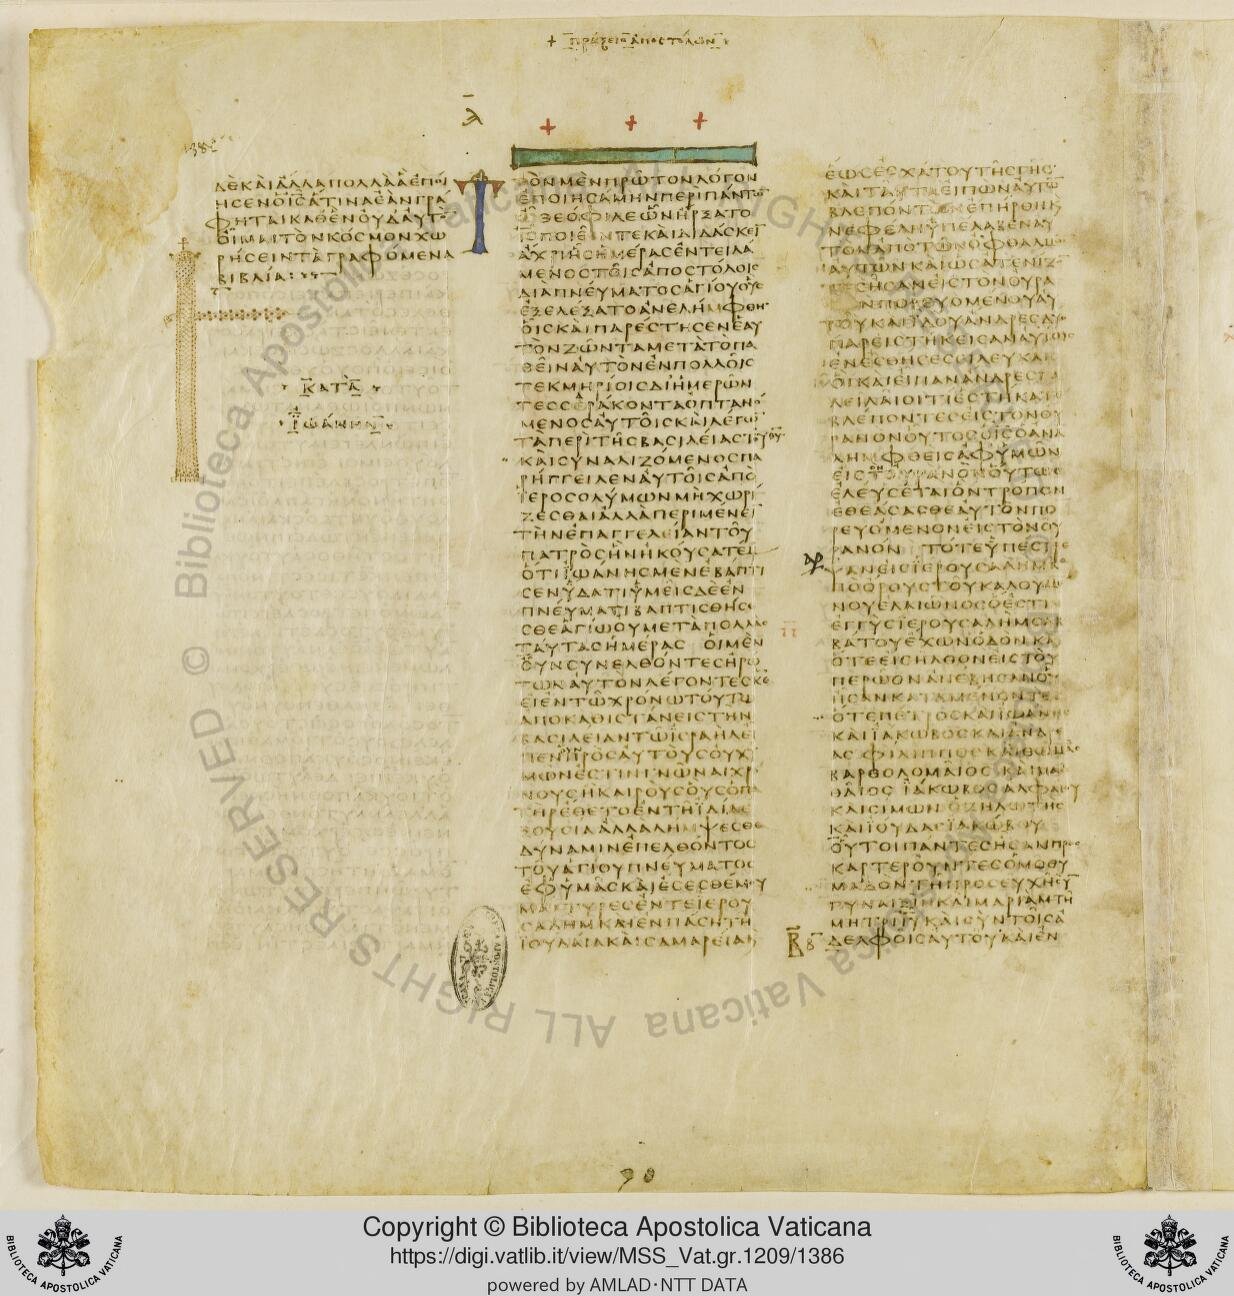 + Πράξεις ἀποστόλων
Α
1382
ΔΕΚΑΙΑΛΛΑΠΟΛΛΑΑΕΠΟΙ
ΗΣΕΝΟΙΣΑΤΙΝΑΕΑΝΓΡΑ
ΦΗΤΑΙΚΑΘΕΝΟΥΔΑΥΤΟ
ΟΙΜΑΙΤΟΝΚΟΣΜΟΝΧΩ
ΡΗΣΕΙΝΤΑΓΡΑΦΟΜΕΝΑ
ΒΙΒΛΙΑ
ΚΑΤΑ
ΙΩΑΝΗΝ
ΤΟΝΜΕΝΠΡΩΤΟΝΛΟΓΟΝ
ΕΠΟΙΗΣΑΜΗΝΠΕΡΙΠΑΝΤΩ
ΩΘΕΟΦΙΛΕΩΝΗΡΞΑΤΟ
ΙΣΠΟΙΕΙΝΤΕΚΑΙΔΙΔΑΣΚΕΙ
ΑΧΡΙΗΣΗΜΕΡΑΣΕΝΤΕΙΛΑ
ΜΕΝΟΣΤΟΙΣΑΠΟΣΤΟΛΟΙΣ
ΔΙΑΠΝΕΥΜΑΤΟΣΑΓΙΟΥΟΥΣ
ΕΞΕΛΕΞΑΤΟΑΝΕΛΗΜΦΘΗ
ΟΙΣΚΑΙΠΑΡΕΣΤΗΣΕΝΕΑΥ
ΤΟΝΖΩΝΤΑΜΕΤΑΤΟΠΑ
ΘΕΙΝΑΥΤΟΝΕΝΠΟΛΛΟΙΣ
ΤΕΚΜΗΡΙΟΙΣΔΙΗΜΕΡΩΝ
ΤΕΣΣΕΡΑΚΟΝΤΑΟΠΤΑΝΟ
ΜΕΝΟΣΑΥΤΟΙΣΚΑΙΛΕΓΩ
ΤΑΠΕΡΙΤΗΣΒΑΣΙΛΕΙΑΣΤΟΥΘΥ
ΚΑΙΣΥΝΑΛΙΖΟΜΕΝΟΣΠΑ
ΡΗΓΓΕΙΛΕΝΑΥΤΟΙΣΑΠΟ
ΙΕΡΟΣΟΛΥΜΩΝΜΗΧΩΡΙ
ΖΕΣΘΑΙΑΛΛΑΠΕΡΙΜΕΝΕΙ
ΤΗΝΕΠΑΓΓΕΛΕΙΑΝΤΟΥ
ΠΑΤΡΟΣΗΝΗΚΟΥΣΑΤΕΜ
ΟΤΙΙΩΑΝΗΣΜΕΝΕΒΑΠΤΙ
ΣΕΝΥΔΑΤΙΥΜΕΙΣΔΕΕΝ
ΠΝΕΥΜΑΤΙΒΑΠΤΙΣΘΗΣΕ
ΣΘΕΑΓΙΩΟΥΜΕΤΑΠΟΛΛΑΣ
ΤΑΥΤΑΣΗΜΕΡΑΣ ΟΙΜΕΝ
ΟΥΝΣΥΝΕΛΘΟΝΤΕΣΗΡΩ
ΤΩΝΑΥΤΟΝΛΕΓΟΝΤΕΣΚΕ
ΕΙΕΝΤΩΧΡΟΝΩΤΟΥΤΩ
ΑΠΟΚΑΘΙΣΤΑΝΕΙΣΤΗΝ
ΒΑΣΙΛΕΙΑΝΤΩΙΣΡΑΗΛΕΙ
ΠΕΝΠΡΟΣΑΥΤΟΥΣΟΥΧΥ
ΜΩΝΕΣΤΙΝΓΝΩΝΑΙΧΡΟ
ΝΟΥΣΗΚΑΙΡΟΥΣΟΥΣΟΠΑ
ΤΗΡΕΘΕΤΟΕΝΤΗΙΔΙΑΕ
ΞΟΥΣΙΑΑΛΛΑΛΗΜΨΕΣΘΕ
ΔΥΝΑΜΙΝΕΠΕΛΘΟΝΤΟΣ
ΤΟΥΑΓΙΟΥΠΝΕΥΜΑΤΟΣ
ΕΦΥΜΑΣΚΑΙΕΣΕΣΘΕΜΟΥ
ΜΑΡΤΥΡΕΣΕΝΤΕΙΕΡΟΥ
ΣΑΛΗΜΚΑΙΕΝΠΑΣΗΤΗ
ΙΟΥΔΑΙΑΚΑΙΣΑΜΑΡΕΙΑΚ
ΕΩΣΕΣΧΑΤΟΥΤΗΣΓΗΣ
ΚΑΙΤΑΥΤΑΕΙΠΩΝΑΥΤΩ
ΒΛΕΠΟΝΤΩΝΕΠΗΡΘΗΚ
ΝΕΦΕΛΗΥΠΕΛΑΒΕΝΑΥ
ΤΟΝΑΠΟΤΩΝΟΦΘΑΛΜΩ
ΑΥΤΩΝΚΑΙΩΣΑΤΕΝΙΖ
ΤΕΣΗΣΑΝΕΙΣΤΟΝΟΥΡΑ
ΝΟΝΠΟΡΕΥΟΜΕΝΟΥΑΥ
ΤΟΥΚΑΙΙΔΟΥΑΝΔΡΕΣΔΥΟ
ΠΑΡΕΙΣΤΗΚΕΙΣΑΝΑΥΤΟΙΣ
ΕΝΕΣΘΗΣΕΣΙΛΕΥΚΑΙΣ
ΟΙΚΑΙΕΙΠΑΝΑΝΔΡΕΣΓΑ
ΛΕΙΛΑΙΟΙΤΙΕΣΤΗΚΑΤΕ
ΒΛΕΠΟΝΤΕΣΕΙΣΤΟΝΟΥ
ΡΑΝΟΝΟΥΤΟΣΟΙΣΟΑΝΑ
ΛΗΜΦΘΕΙΣΑΦΥΜΩΝ
ΕΙΣΤΟΝΟΥΡΑΝΟΝΟΥΤΩΣ
ΕΛΕΥΣΕΤΑΙΟΝΤΡΟΠΟΝ
ΕΘΕΑΣΑΣΘΕΑΥΤΟΝΠΟ
ΡΕΥΟΜΕΝΟΝΕΙΣΤΟΝΟΥ
ΡΑΝΟΝ ΤΟΤΕΥΠΕΣΤΡΕ
ΨΑΝΕΙΣΙΕΡΟΥΣΑΛΗΜΑ
ΠΟΟΡΟΥΣΤΟΥΚΑΛΟΥΜΕ
ΝΟΥΕΛΑΙΩΝΟΣΟΕΣΤΙ
ΕΓΓΥΣΙΕΡΟΥΣΑΛΗΜΣΑΒ
ΒΑΤΟΥΕΧΩΝΟΔΟΝΚΑΙ
ΟΤΕΕΙΣΗΛΘΟΝΕΙΣΤΟΥ
ΠΕΡΩΟΝΑΝΕΒΗΣΑΝΟΥ
ΗΣΑΝΚΑΤΑΜΕΝΟΝΤΕΣ
ΟΤΕΠΕΤΡΟΣΚΑΙΙΩΑΝΗΣ
ΚΑΙΙΑΚΩΒΟΣΚΑΙΑΝΔΡΕ
ΑΣΦΙΛΙΠΠΟΣΚΑΙΘΩΜΑΣ
ΒΑΡΘΟΛΟΜΑΙΟΣΚΑΙΜΑΘ
ΘΑΙΟΣΙΑΚΩΒΟΣΑΛΦΑΙΟΥ
ΚΑΙΣΙΜΩΝΟΖΗΛΩΤΗΣ
ΚΑΙΙΟΥΔΑΣΙΑΚΩΒΟΥ
ΟΥΤΟΙΠΑΝΤΕΣΗΣΑΝΠΡΟΣ
ΚΑΡΤΕΡΟΥΝΤΕΣΟΜΟΘΥ
ΜΑΔΟΝΤΗΠΡΟΣΕΥΧΗΣΥ
ΓΥΝΑΙΞΙΝΚΑΙΜΑΡΙΑΜΤΗ
ΜΗΤΡΙΙΥΚΑΙΣΥΝΤΟΙΣΑ
ΔΕΛΦΟΙΣΑΥΤΟΥΚΑΙΕΝ
© Biblioteca Apostolica Vaticana ALL RIGHTS RESERVED
BIBLIOTECA APOSTOLICA VATICANA
Copyright © Biblioteca Apostolica Vaticana
https://digi.vatlib.it/view/MSS_Vat.gr.1209/1386
powered by AMLAD·NTT DATA
BIBLIOTECA APOSTOLICA VATICANA